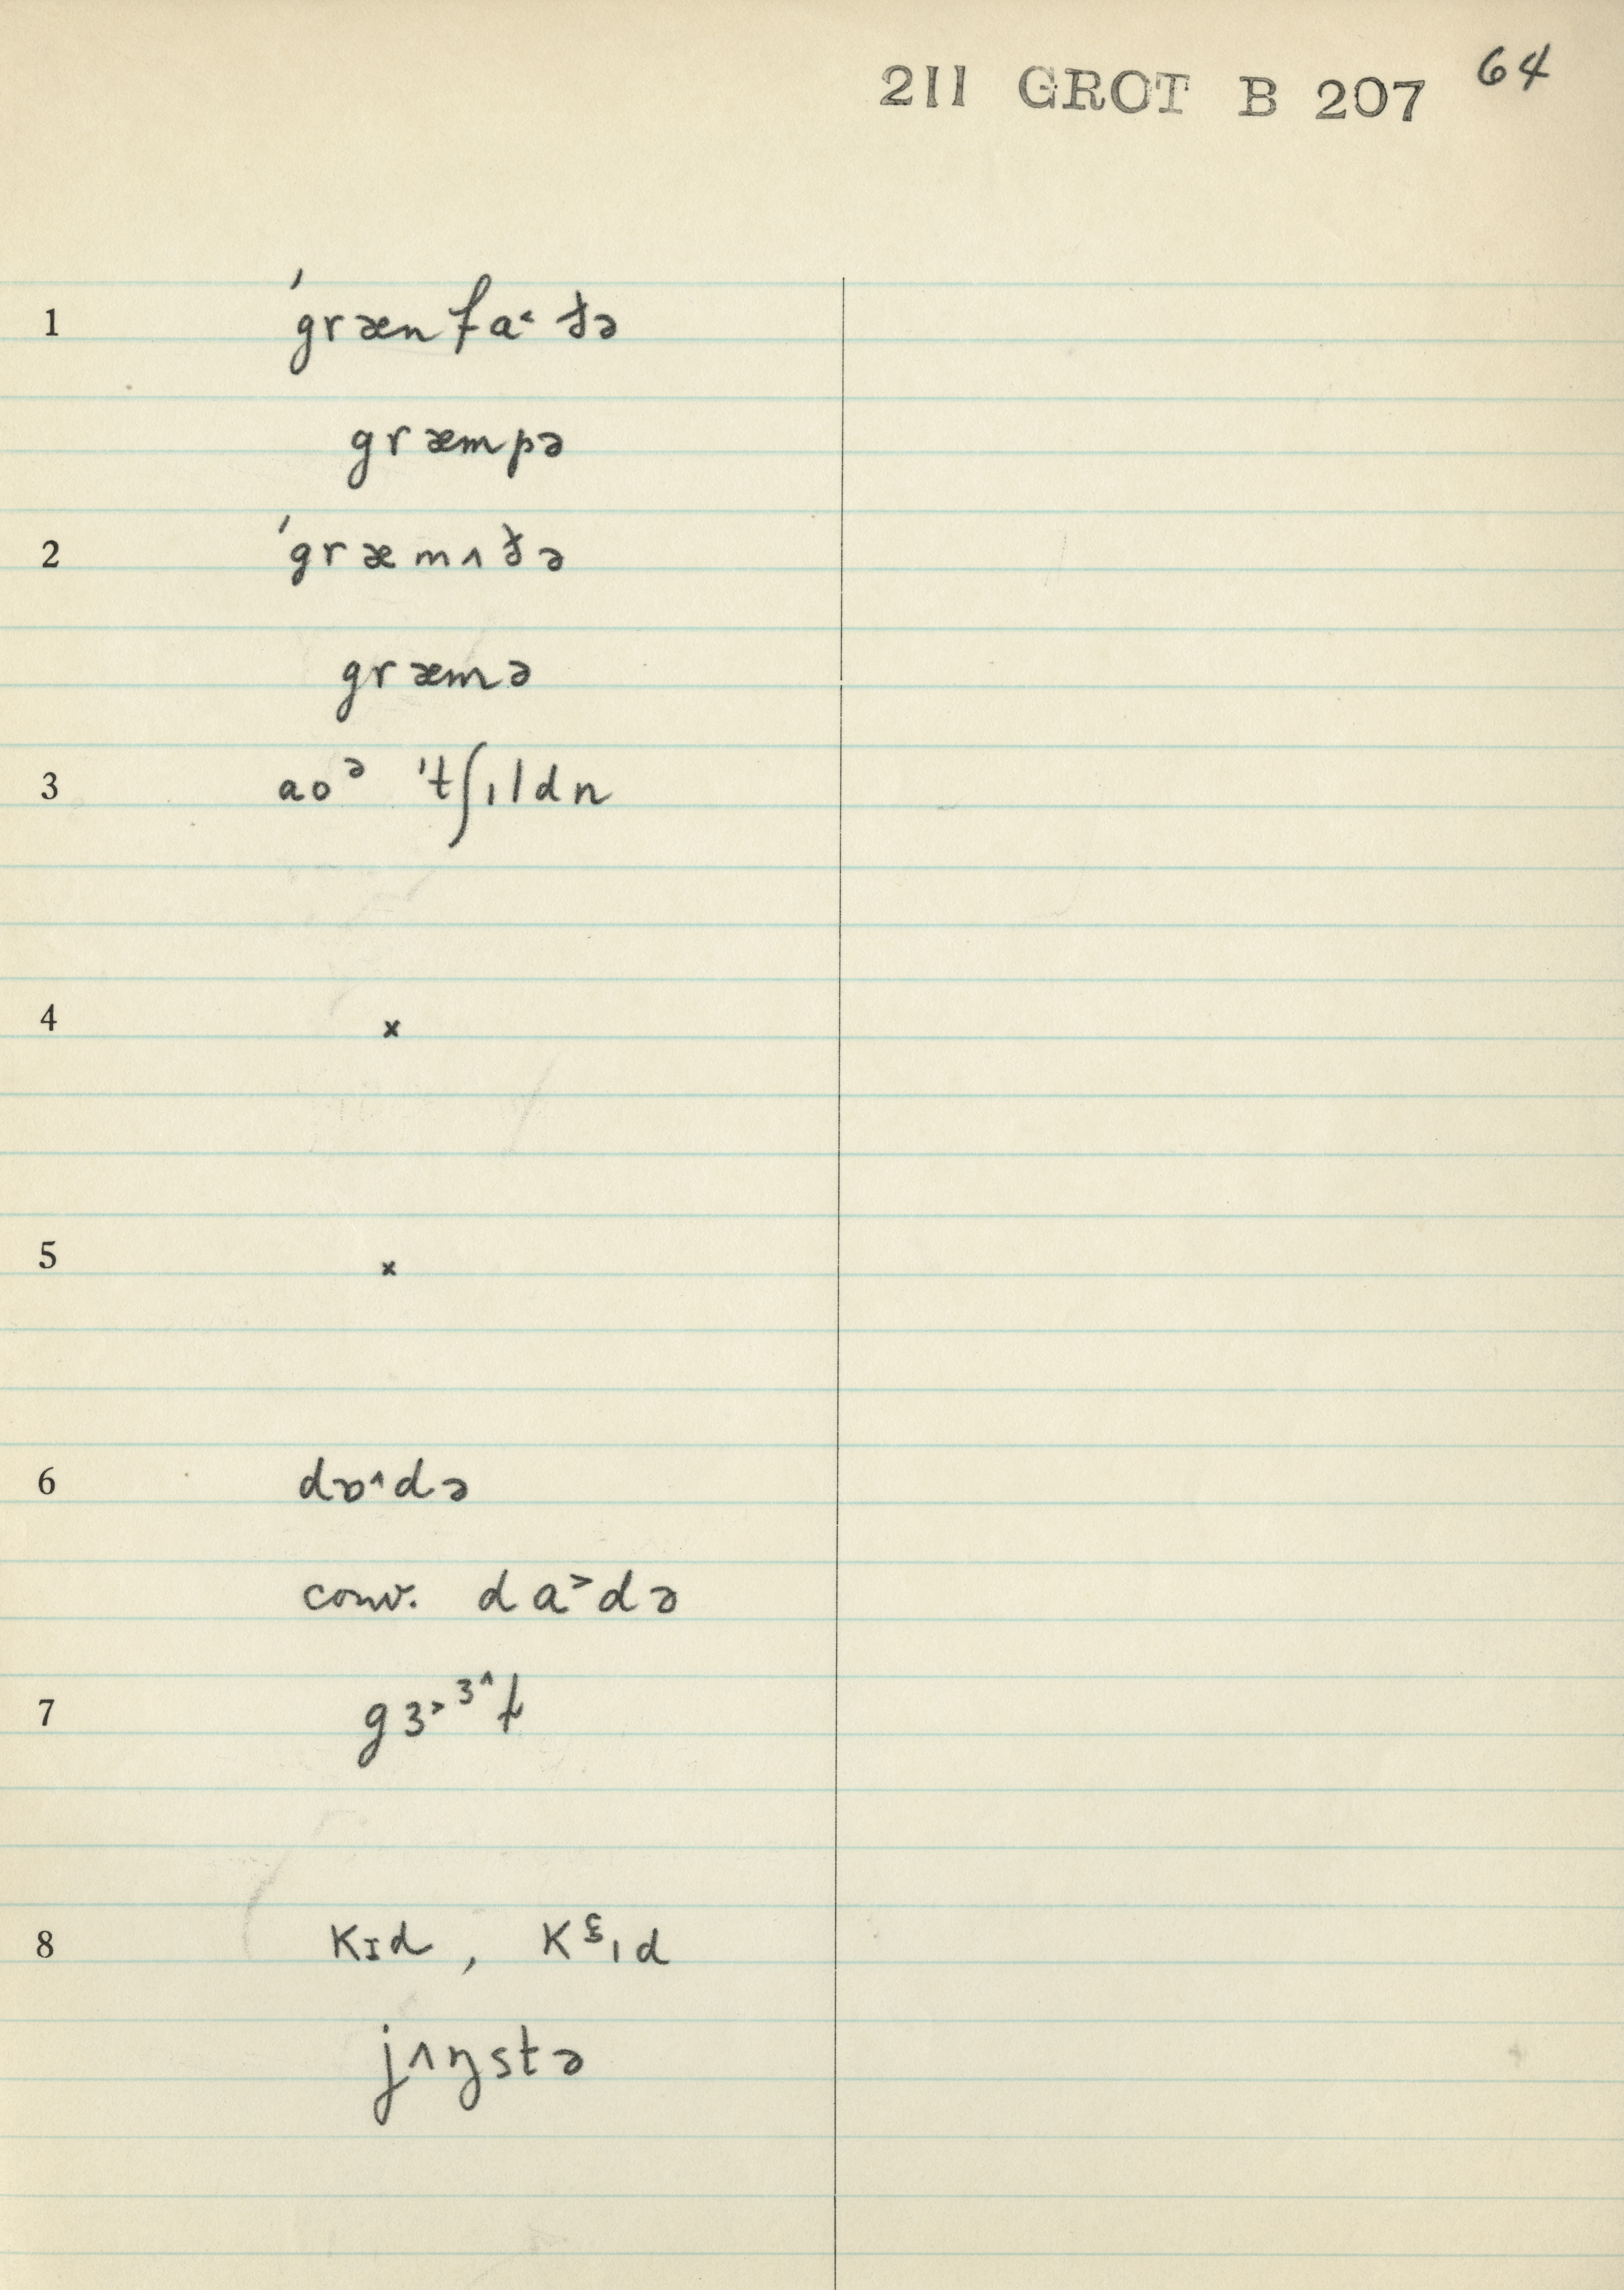 211 GROT B 207 64
1 ˈgrænfa˂ðə
græmpə
2 ˈgræmʌðə
græmə
3 aoᵊ ˈtʃɪldn
4 x
5 x
6 dɒ˄də
conv. da˃də
7 gɜ˃ᶟ˄ɫ
8 kɪd , kᶓɪd
jʌŋstə